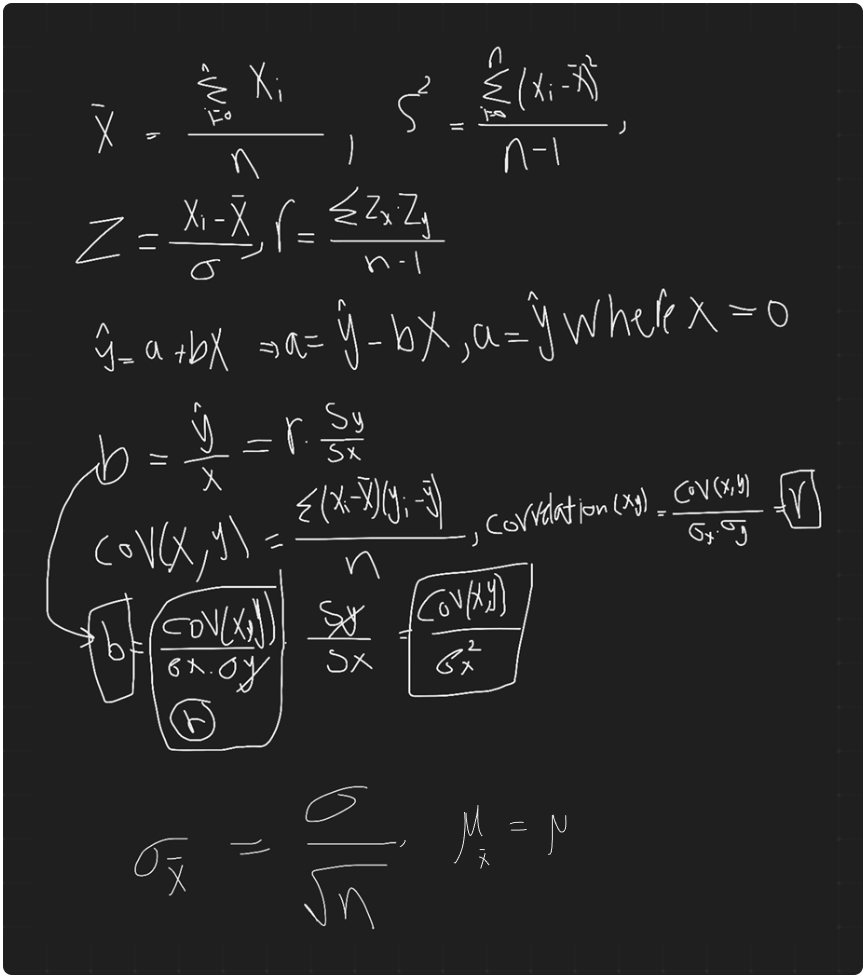 x̄ = \frac{\sum_{i=0}^{n} x_i}{n}, s^2 = \frac{\sum_{i=0}^{n} (x_i - x̄)^2}{n-1},
Z = \frac{x_i - x̄}{σ}, r = \frac{\sum Z_x \cdot Z_y}{n-1}
ŷ = a + bx ⇒ a = ŷ - bx, a = ŷ where x = 0
b = \frac{ŷ}{x} = r \cdot \frac{Sy}{Sx}
cov(x, y) = \frac{\sum (x_i - x̄)(y_i - ȳ)}{n}, correlation(xy) = \frac{cov(x,y)}{σ_x \cdot σ_y} = r
b = \frac{cov(x,y)}{σx \cdot σy} \cdot \frac{Sy}{Sx} = \frac{cov(x,y)}{σ_x^2}
r
σ_{x̄} = \frac{σ}{\sqrt{n}}, μ_{x̄} = μ